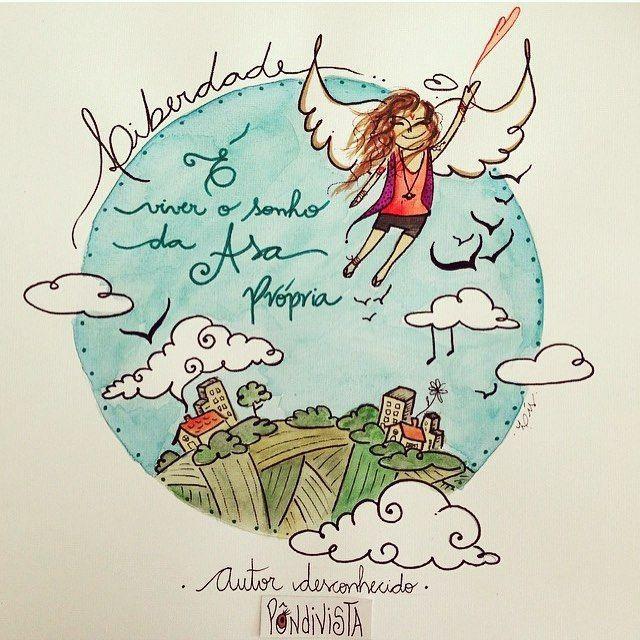 Liberdade
É
viver o sonho
da Asa
Própria
. autor desconhecido .
PÔNDIVISTA